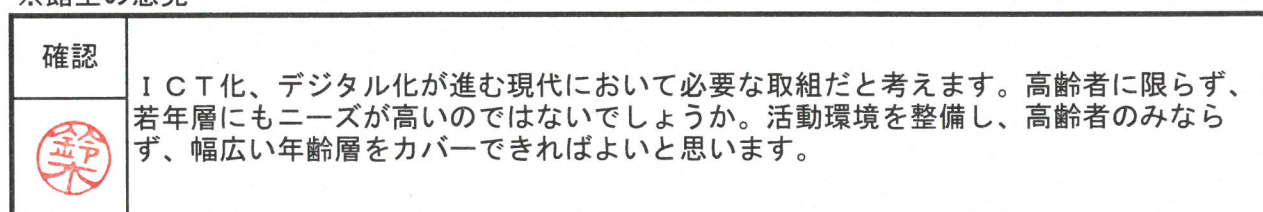 確認
ＩＣＴ化、デジタル化が進む現代において必要な取組だと考えます。高齢者に限らず、
若年層にもニーズが高いのではないでしょうか。活動環境を整備し、高齢者のみなら
ず、幅広い年齢層をカバーできればよいと思います。
鈴木